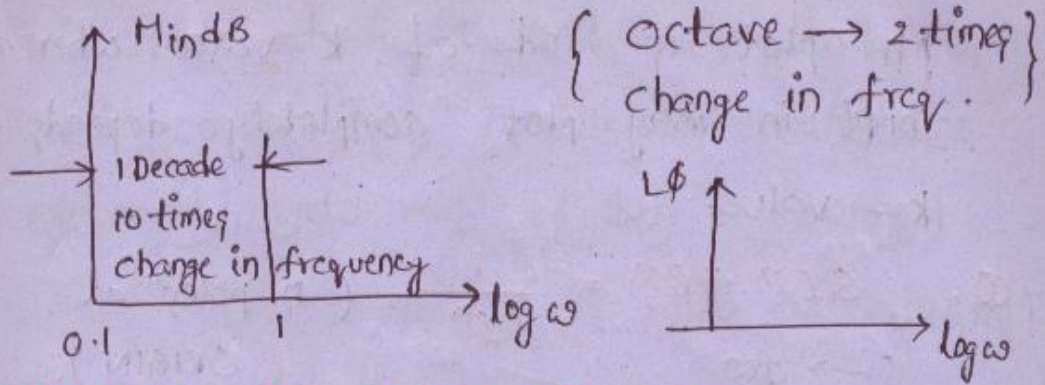 M in dB
{ Octave → 2 times
change in freq. }
1 Decade
10 times
change in frequency
0.1
1
log ω
∠ϕ
log ω